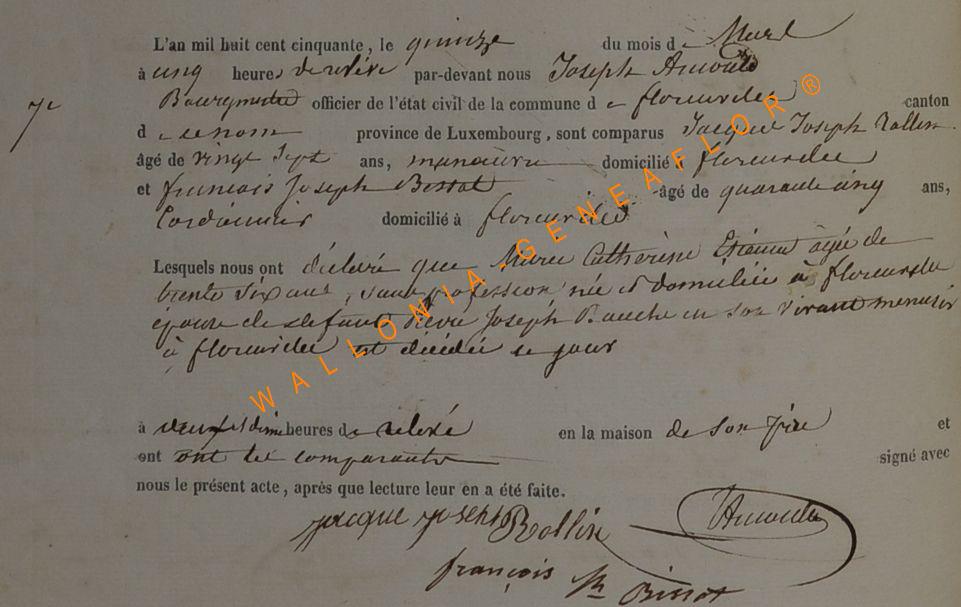 L'an mil huit cent cinquante, le quinze du mois d e Mars
à cinq heures de relevé par-devant nous Joseph Arnould
7e Bourgmestre officier de l'état civil de la commune d e florenville canton
d e ce nom province de Luxembourg, sont comparus Jacque Joseph Rollin
âgé de vingt sept ans, manœuvre domicilié à florenville
et francois Joseph Bissot âgé de quarante cinq ans,
Cordonnier domicilié à florenville
Lesquels nous ont déclaré que Marie Catherine Etienne agée de
trente six ans, sans profession née et domiciliée à florenville
épouse de defunt Pierre Joseph en son vivant menuisier
à florenville est décédée ce jour
à deux et dimi heures de relevé en la maison de son frère et
ont ont les comparants signé avec
nous le présent acte, après que lecture leur en a été faite.
jacque joseph Rollin Arnould
françois Bissot
WALLONIA.GENEAFLOR®